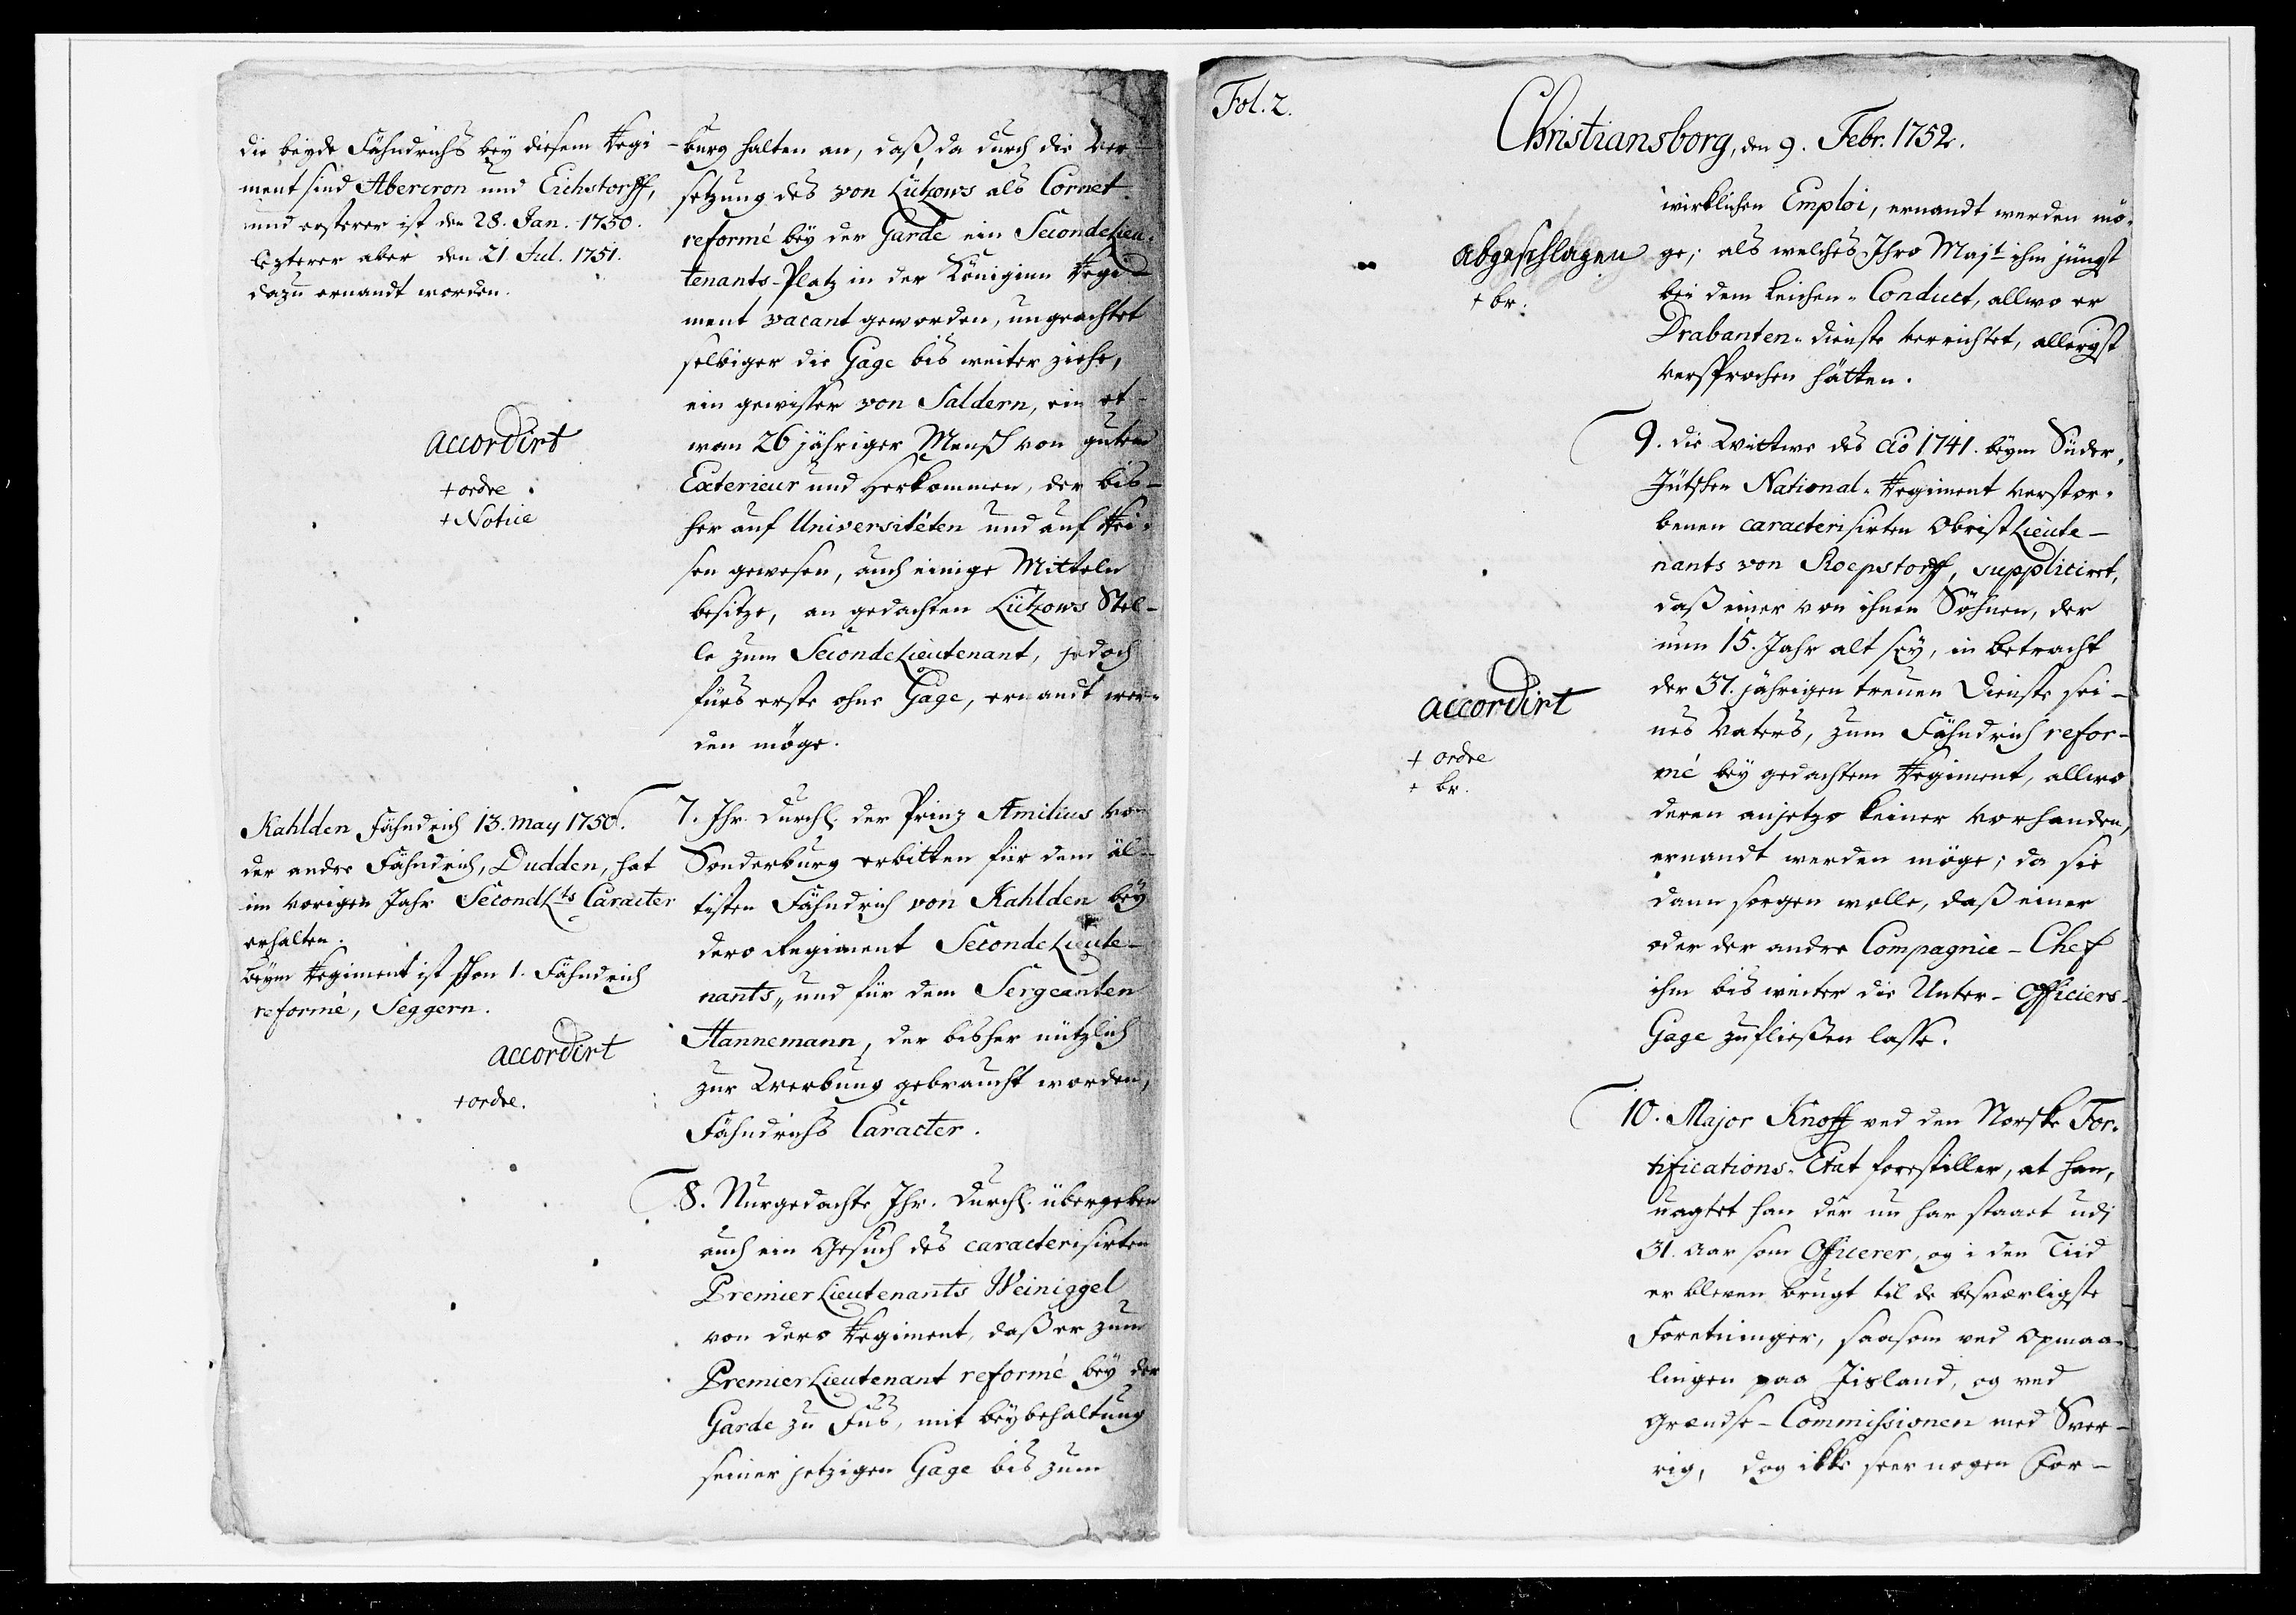 die beyde Fähndrichs bey diesem Regi-
ment sind Abercron und Eichstorff,
und ersterer ist den 28. Jan. 1750.
lezterer aber den 21 Jul. 1751.
dazu ernandt worden.
accordirt
+ ordre
+ Notice
Kahlden Fähndrich 13. may 1750.
der andre Fähndrich, Dudden, hat
im vorigen Jahr SecondLts Caracter
erhalten.
beym Regiment ist schon 1. Fähndrich
reformé, Seggern.
accordirt
+ ordre.
burg halten an, daß, da durch die Ver-
setzung des von Lützows als Cornet
reformé bey der Garde ein SecondeLieu-
tenants-Platz in der Königinn Regi-
ment vacant geworden, ungeachtet
selbiger die Gage bis weiter ziehe,
ein gewisser von Saldern, ein et-
wan 26 jähriger Mensch von gutem
Exterieur und Herkommen, der bis-
her auf Universitéten und auf Rei-
sen gewesen, auch einige Mitteln
besitze, an gedachten Lützows Stel-
le zum SecondeLieutenant, jedoch
fürs erste ohne Gage, ernandt wer-
den möge.
7. Ihr. Durchl. der Prinz Æmilius von
Sonderburg erbitten für dem äl-
tisten Fähndrich von Kahlden bey
dero Regiment SecondeLieute-
nants, und für dem Sergeanten
Hannemann, der bisher nützlich
zur Werbung gebraucht worden,
Fähndrichs Caracter.
8. Nurgedachte Ihr. Durchl. übergeben
auch ein Gesuch des caracterisirten
PremierLieutenants Weiniggel
von dero Regiment, daß er zum
PremierLieutenant reformé bey der
Garde zu Fus, mit beybehaltung
seiner jetzigen Gage bis zum
Fol. 2.
Christiansborg, den 9. Febr. 1752.
wirklichen Emploi, ernandt werden mö-
ge; als welches Ihro Majt ihm jüngst
bei dem Leichen-Conduct, allwo er
Drabanten-dienste verrichtet, allergst
versprochen hätten.
abgeschlagen
+ br.
9. die Wittwe des ao 1741. beym Süder-
Jütschen National-Regiment verstor-
benen caracterisirten ObristLieute-
nants von Roepstorff, suppliciret,
daß einer von ihren Söhnen, der
nun 15. Jahr alt sey, in betracht
der 37. jährigen treuen Dienste sei-
nes Vaters, zum Fähndrich refor-
mé bey gedachtem Regiment, allwo
deren anjetzo keiner vorhanden,
ernandt werden möge; da sie
dann sorgen wolle, daß einer
oder der andre Compagnie-Chef
ihm bis weiter die Unter-Officiers-
Gage zufließen lasse.
accordirt
+ ordre
+ br.
10. Major Knoff ved den Norske For-
tifications-Etat forestiller, at han,
uagtet han der nu har staaet udi
31. Aar som Officerer, og i den Tiid
er bleven brugt til de besværligste
Foretninger, saasom ved Opmaa-
lingen paa Jisland, og ved
Grændse-Commissionen med Sver-
rig, dog ikke seer nogen For-